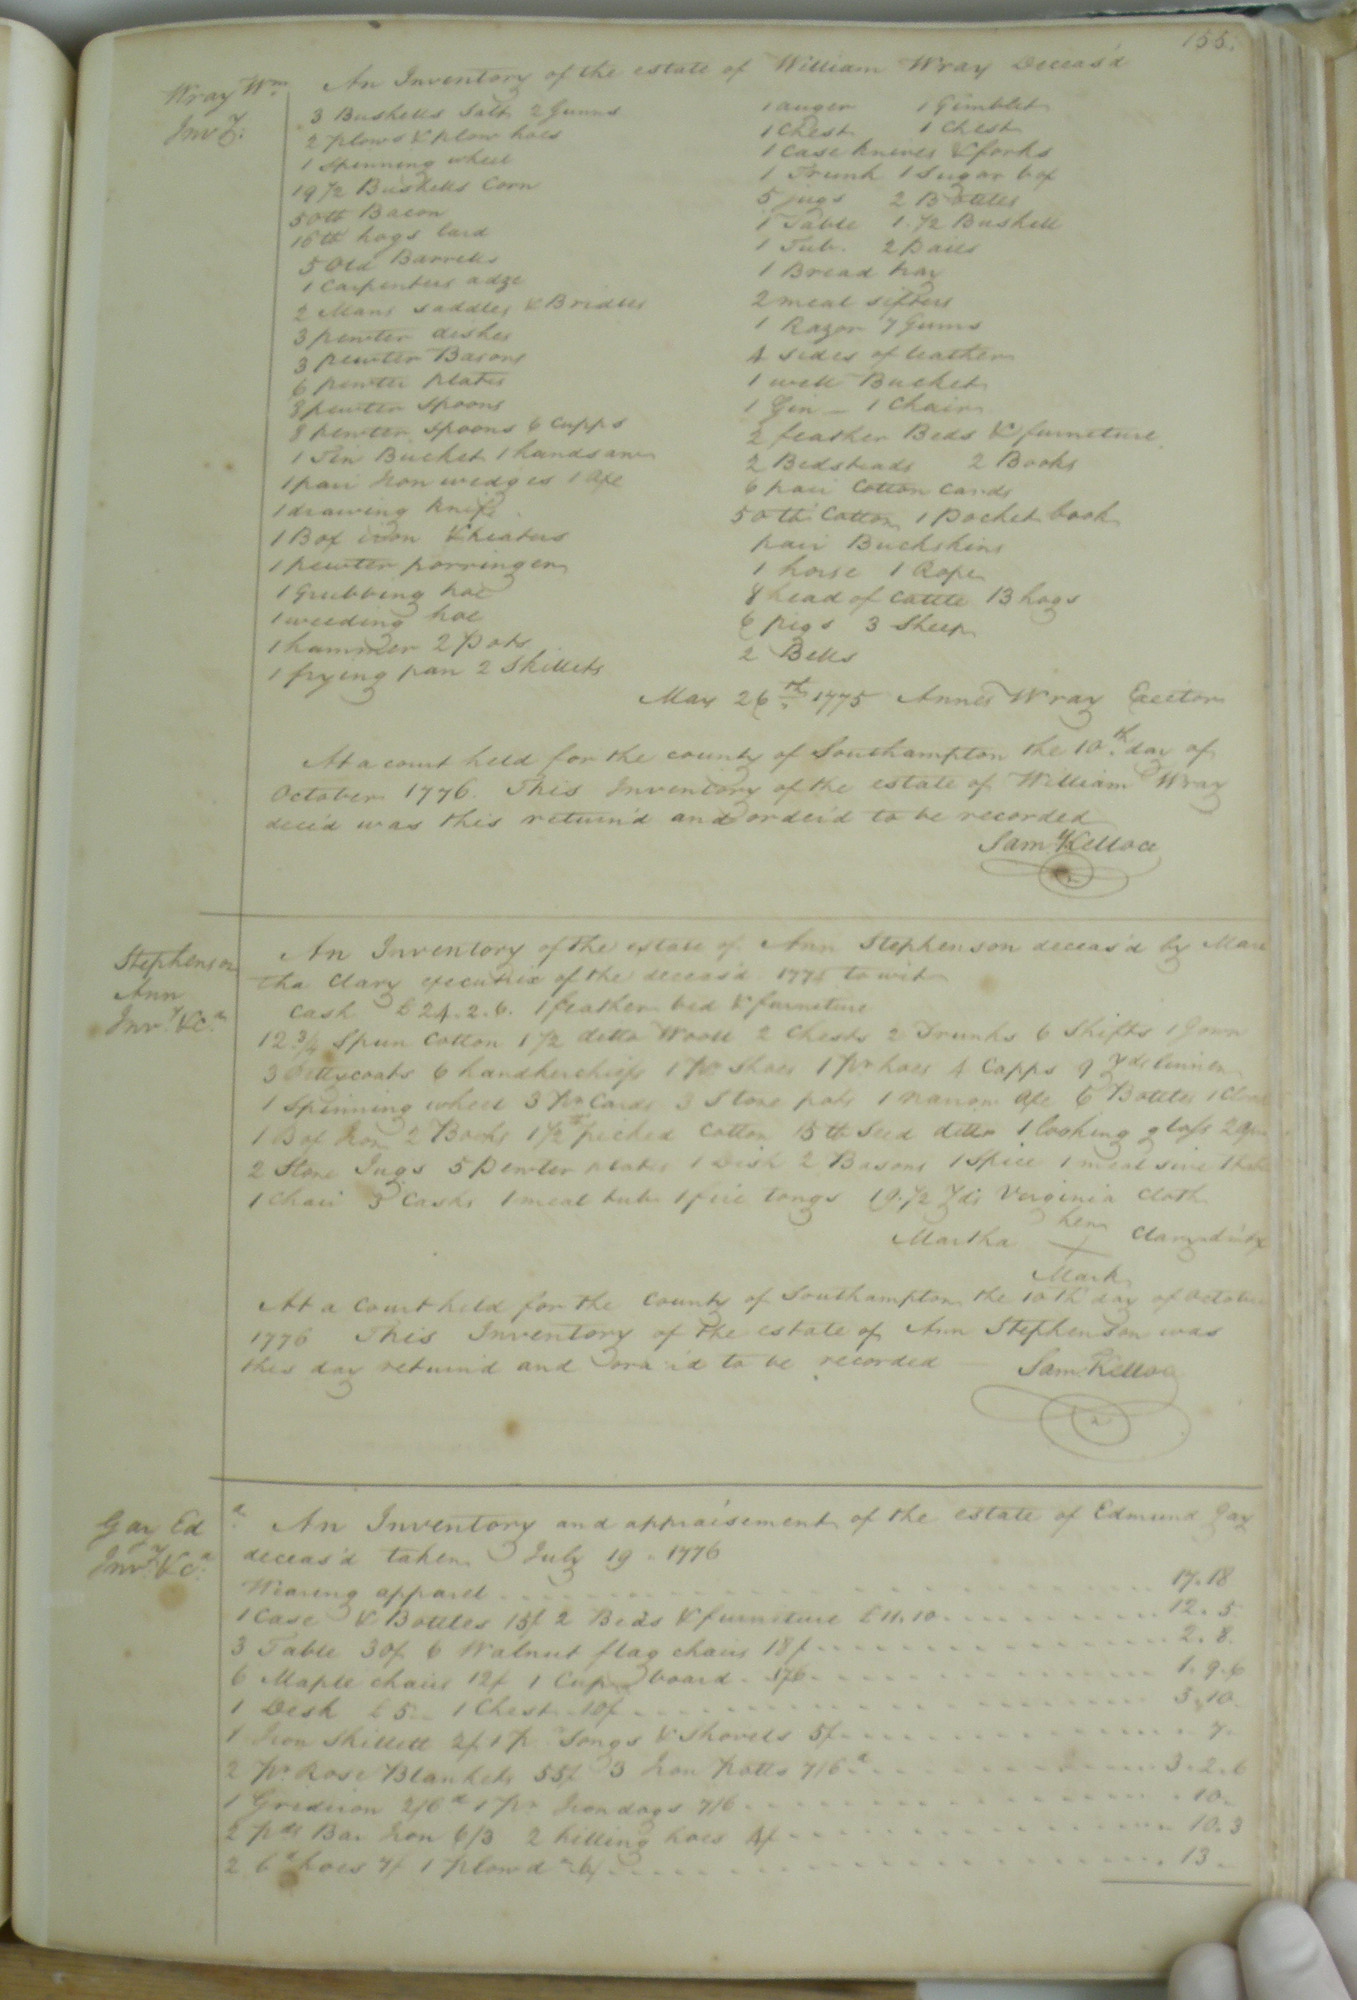 155.
Wray Wm
Invy:
An Inventory of the estate of William Wray Deceas'd
3 Bushells Salt 2 Gunns
2 plows & plow hoes
1 Spinning wheel
19 1/2 Bushells Corn
50 lb Bacon
16 lb hogs lard
5 Old Barrells
1 Carpenters adze
2 Mans saddles & Bridles
3 pewter dishes
3 pewter Basons
6 pewter plates
8 pewter spoons
8 pewter spoons 6 Cupps
1 Tin Bucket 1 handsaw
1 pair Iron wedges 1 Axe
1 drawing knife
1 Box iron & heaters
1 pewter porringer
1 Grubbing hoe
1 weeding hoe
1 hammer 2 Pots
1 frying pan 2 Skillets
1 auger 1 Gimblet
1 Chest 1 Chest
1 Case knives & forks
1 Trunk 1 Sugar box
5 jugs 2 Bottles
1 Table 1. 1/2 Bushell
1 Tub 2 Pails
1 Bread tray
2 meal sifters
1 Razor 7 Gums
4 sides of leather
1 well Bucket
1 Gin — 1 Chair
2 feather Beds & furniture
2 Bedsteads 2 Books
6 pair Cotton Cards
50 lb Cotton 1 Pocket book
pair Buckskins
1 horse 1 Rope
8 head of Cattle 13 hogs
6 pigs 3 Sheep
2 Bells
May 26th 1775 Annes Wray Exector
At a court held for the county of Southampton the 10th day of
October 1776. This Inventory of the estate of William Wray
dece'd was this return'd and order'd to be recorded
Sam Kelloe
Stephenson
Ann
Invy &ca
An Inventory of the estate of Ann Stephenson deceas'd by Mar
tha Clary executrix of the deceas'd 1775 to wit
Cash £24.2.6. 1 feather bed & furniture
12 3/4 Spun Cotton 1 1/2 ditto Wooll 2 Chests 2 Trunks 6 Shifts 1 Gown
3 Pettycoats 6 handkerchiefs 1 pr Shoes 1 pr hoes 4 Capps 9 yds linnen
1 Spinning wheel 3 pr Cards 3 Stone pots 1 narrow Axe 6 Bottles
1 Box Iron 2 Books 1 1/2 lb picked Cotton 15 lb Seed ditto 1 looking glass
2 Stone Jugs 5 Pewter plates 1 Dish 2 Basons 1 Spice 1 meal sive
1 Chair 3 Casks 1 meal tub 1 fire tongs 19. 1/2 yds Virginia Cloth
Martha her Clary
X
Mark
At a Court held for the County of Southampton the 10th day of October
1776 This Inventory of the estate of Ann Stephenson was
this day return'd and ord'd to be recorded Sam Kelloe
Gay Ed
Invy &ca:
An Inventory and appraisement of the estate of Edmund Gay
deceas'd taken July 19. 1776
Wearing apparel 17.18
1 Case & Bottles 15/ 2 Beds & furniture £11.10 12.5
3 Table 30/ 6 Walnut flag chairs 18/ 2.8.
6 Maple chairs 12/ 1 Cupboard 1.9.6
1 Desk £5 1 Chest 10/ 5.10.
1 Iron Skillett 2/ 1 pr Tongs & Shovels 5/ 7.
2 pr Rose Blankets 55/ 3 Iron Potts 7/6 3.2.6
1 Gridiron 2/6d 1 pr Iron dogs 7/6 10.
2 pds Bar Iron 6/3 2 hilling hoes 4/ 10.3
2 hoes 7/ 1 Plow 13